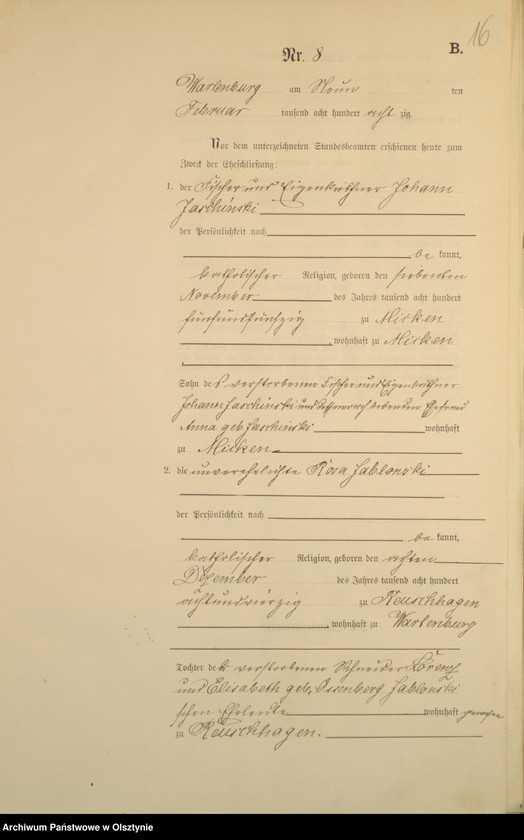 16
B.
Nr. 8
Wartenburg am Neun ten
Februar tausend acht hundert acht zig.
Vor dem unterzeichneten Standesbeamten erschienen heute zum
Zweck der Eheschließung:
1. der Fischer und Eigenkäthner Johann
Jaschinski
der Persönlichkeit nach
be kannt,
katholischer Religion, geboren den siebenten
November des Jahres tausend acht hundert
fünfundfünfzig zu Micken
, wohnhaft zu Micken
Sohn des verstorbenen Fischer und Eigenkäthner
Johann Jaschinski und dessen noch lebenden Ehefrau
Anna geb. Jaschinski wohnhaft
zu Micken
2. die unverehelichte Rosa Jablonski
der Persönlichkeit nach
be kannt,
katholischer Religion, geboren den achten
Dezember des Jahres tausend acht hundert
achtundvierzig zu Reuschhagen
, wohnhaft zu Wartenburg
Tochter der verstorbenen Schneider Lorenz
und Elisabeth geb. Ossenberg Jablonski
schen Eheleute wohnhaft gewesen
zu Reuschhagen.
Archiwum Państwowe w Olsztynie